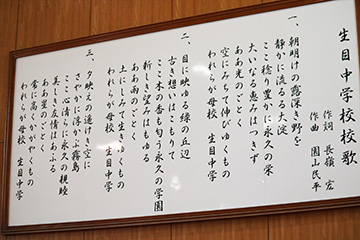 生目中学校校歌
作詞 長嶺 宏
作曲 園山民平
一、朝明けの霧深き野を
静かに流るる大淀
ここ稔り豊かに永久の栄
大いなる恵みはつきず
ああ光のごとく
空にみちて伸びゆくもの
われらが母校 生目中学
二、目に映ゆる緑の丘辺
古き想いはこもりて
ここ木の香も匂う永久の学園
新しき望みはもゆる
ああ雨のごとく
土にしみて生きゆくもの
われらが母校 生目中学
三、夕映えの遥けき空に
さやかに浮かぶ霧島
ここ心清らに永久の親睦
美しき友情はあふる
ああ星のごとく
常に高くかがやくもの
われらが母校 生目中学